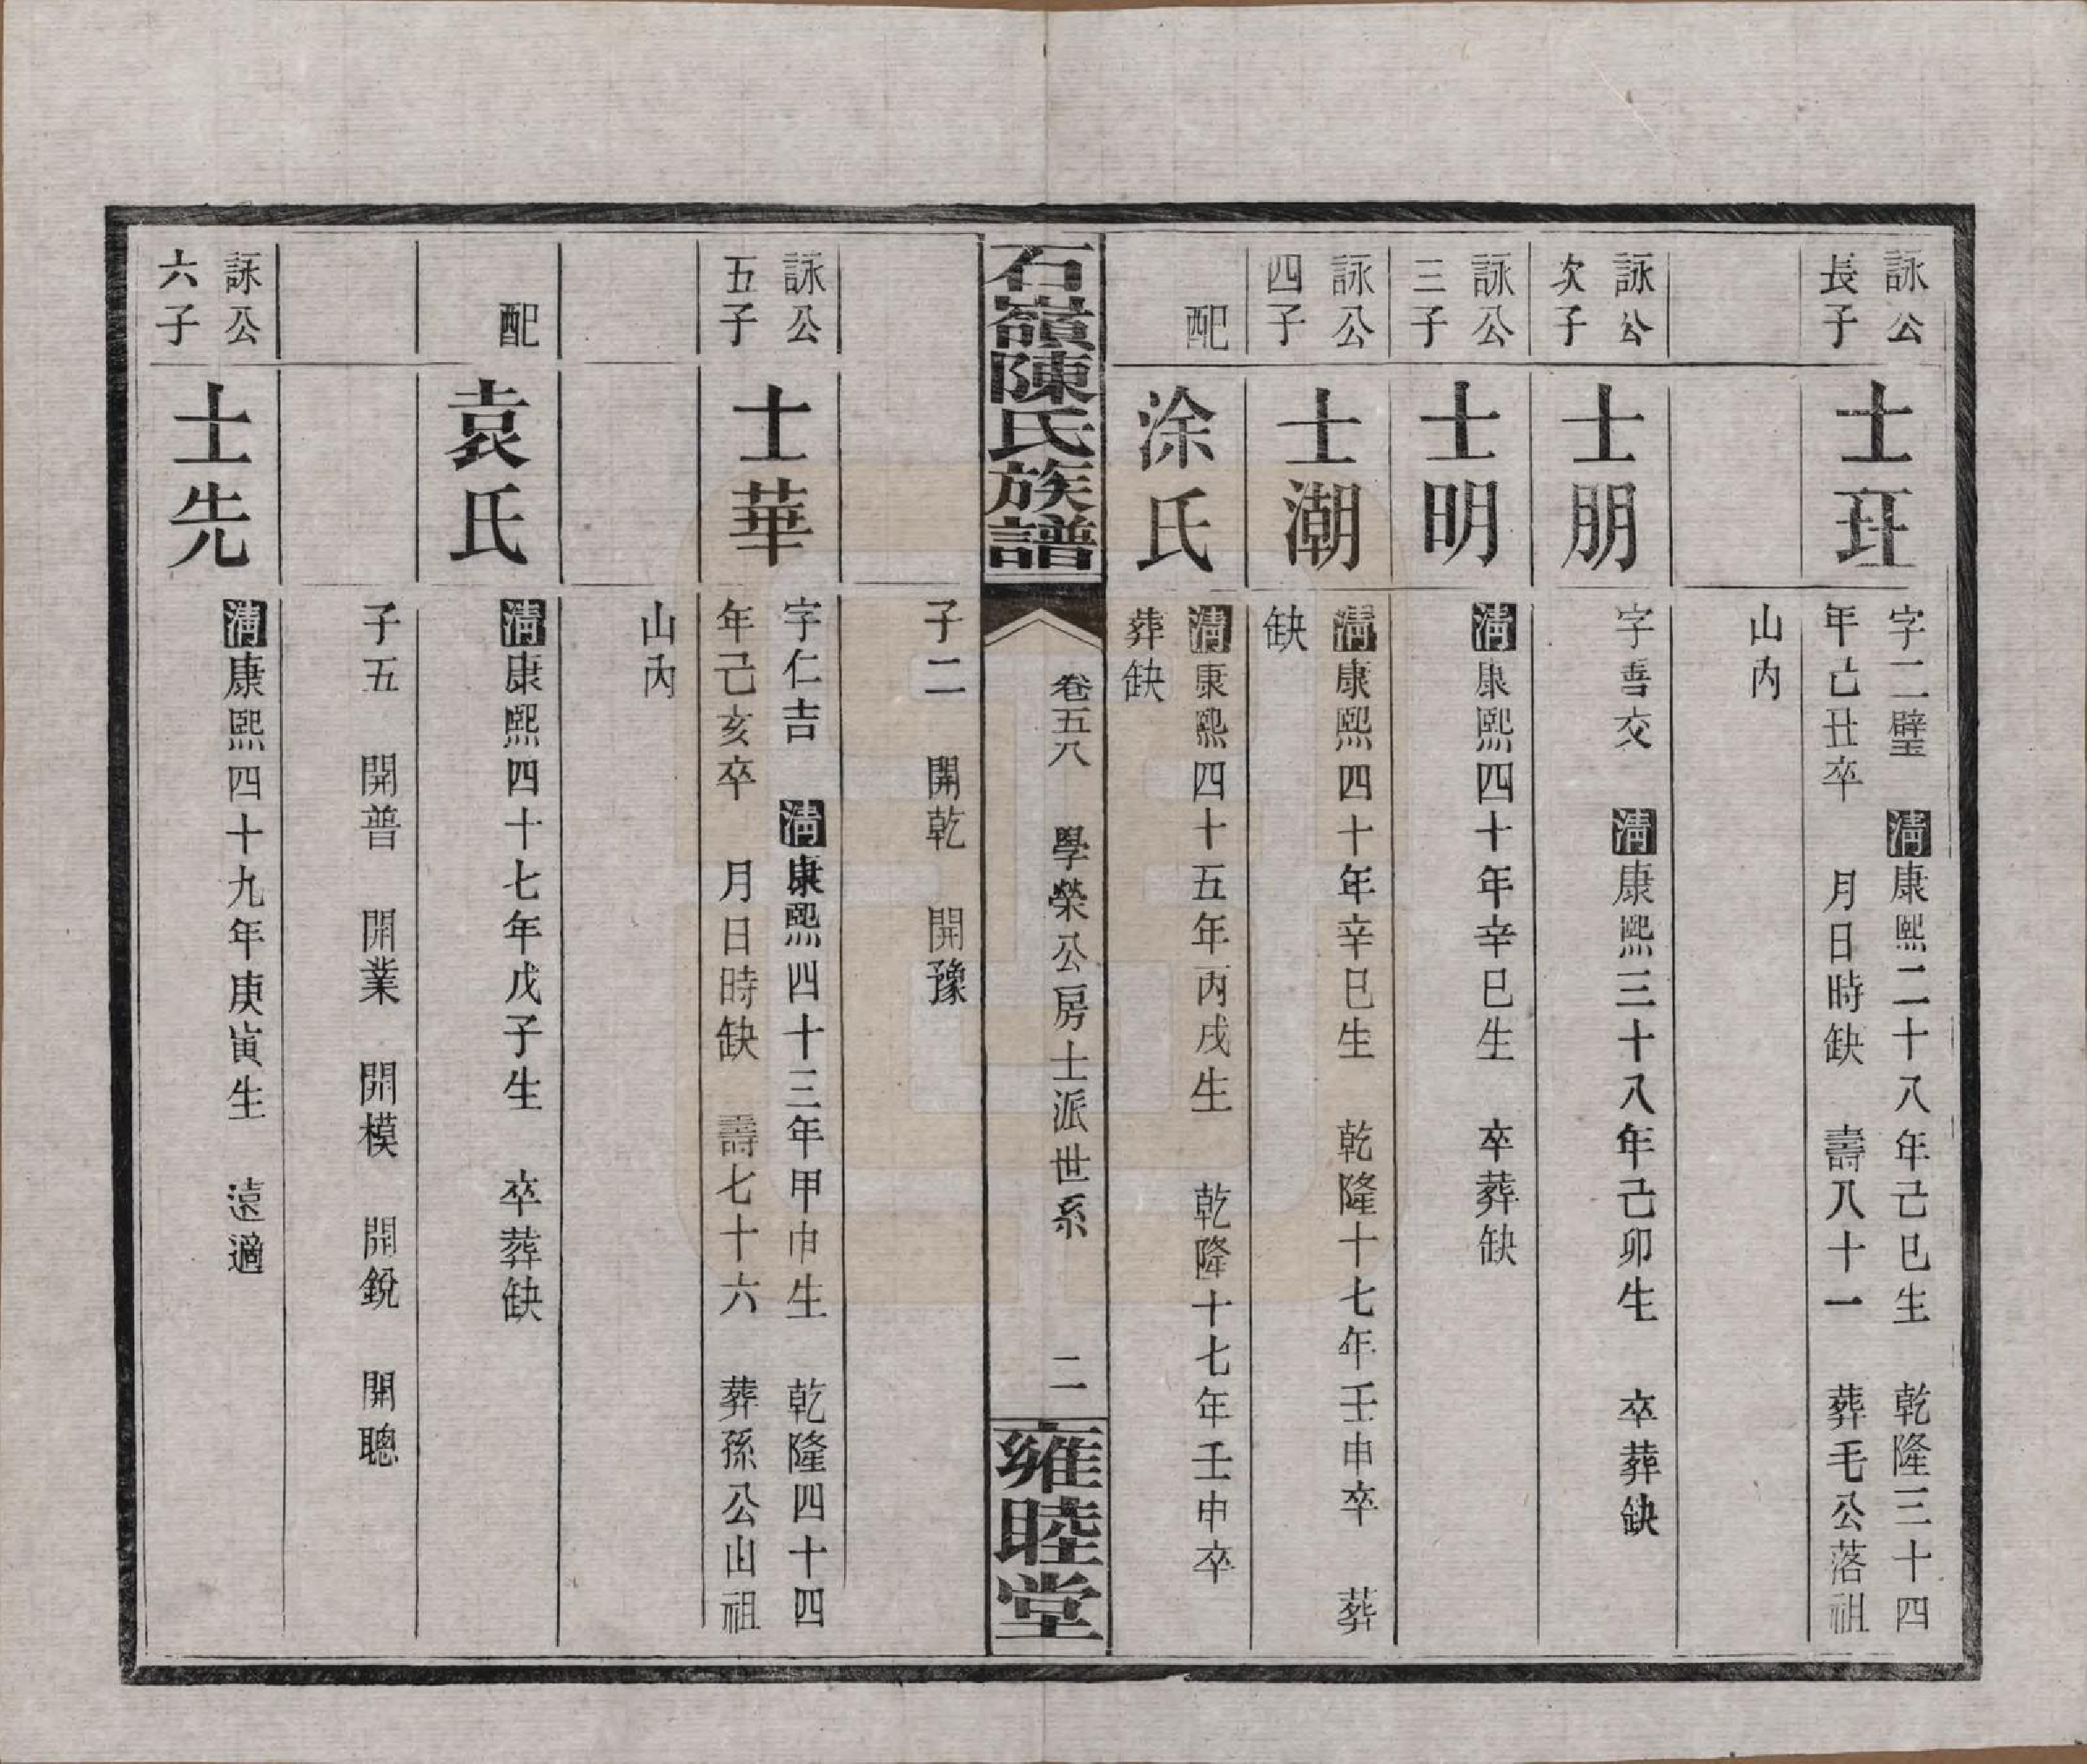 詠公
長子
士玨
字二璧　清康熙二十八年己巳生　乾隆三十四
年己丑卒　月日時缺　壽八十一　葬毛公落祖
山內
詠公
次子
士朋
字善交　清康熙三十八年己卯生　卒葬缺
詠公
三子
士明
清康熙四十年辛巳生　卒葬缺
詠公
四子
士潮
清康熙四十年辛巳生　乾隆十七年壬申卒　葬
缺
配
涂氏
清康熙四十五年丙戌生　乾隆十七年壬申卒
葬缺
石嶺陳氏族譜
卷五八　學榮公房士派世系　二
雍睦堂
子二　開乾　開豫
詠公
五子
士華
字仁吉　清康熙四十三年甲申生　乾隆四十四
年己亥卒　月日時缺　壽七十六　葬孫公山祖
山內
配
袁氏
清康熙四十七年戊子生　卒葬缺
子五　開普　開業　開模　開銳　開聰
詠公
六子
士先
清康熙四十九年庚寅生　遠適